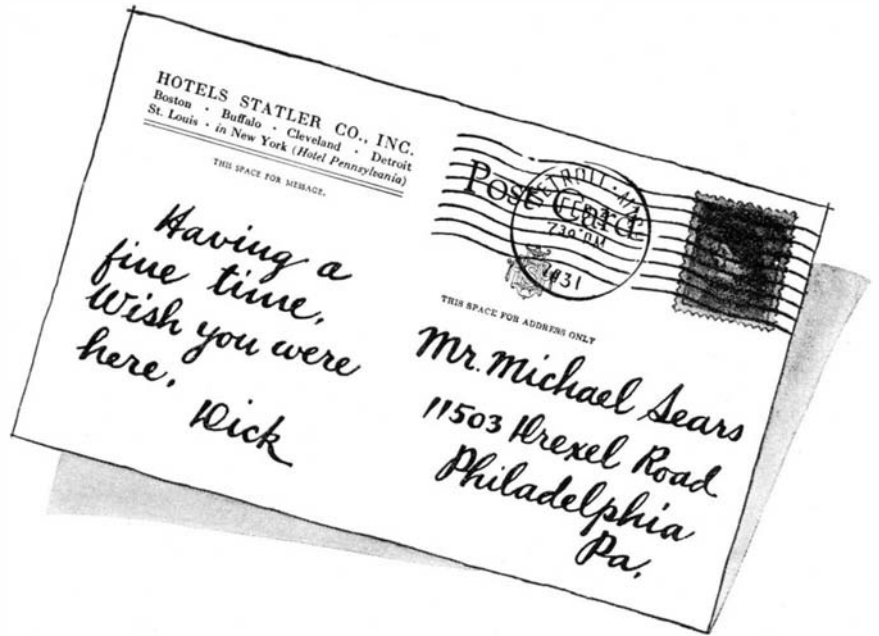 HOTELS STATLER CO., INC.
Boston · Buffalo · Cleveland · Detroit
St. Louis · in New York (Hotel Pennsylvania)
THIS SPACE FOR MESSAGE.
Having a
fine time.
Wish you were
here.
Dick
Post Card
DETROIT, MI
FEB
730 PM
1931
THIS SPACE FOR ADDRESS ONLY
Mr. Michael Sears
11503 Drexel Road
Philadelphia
Pa.